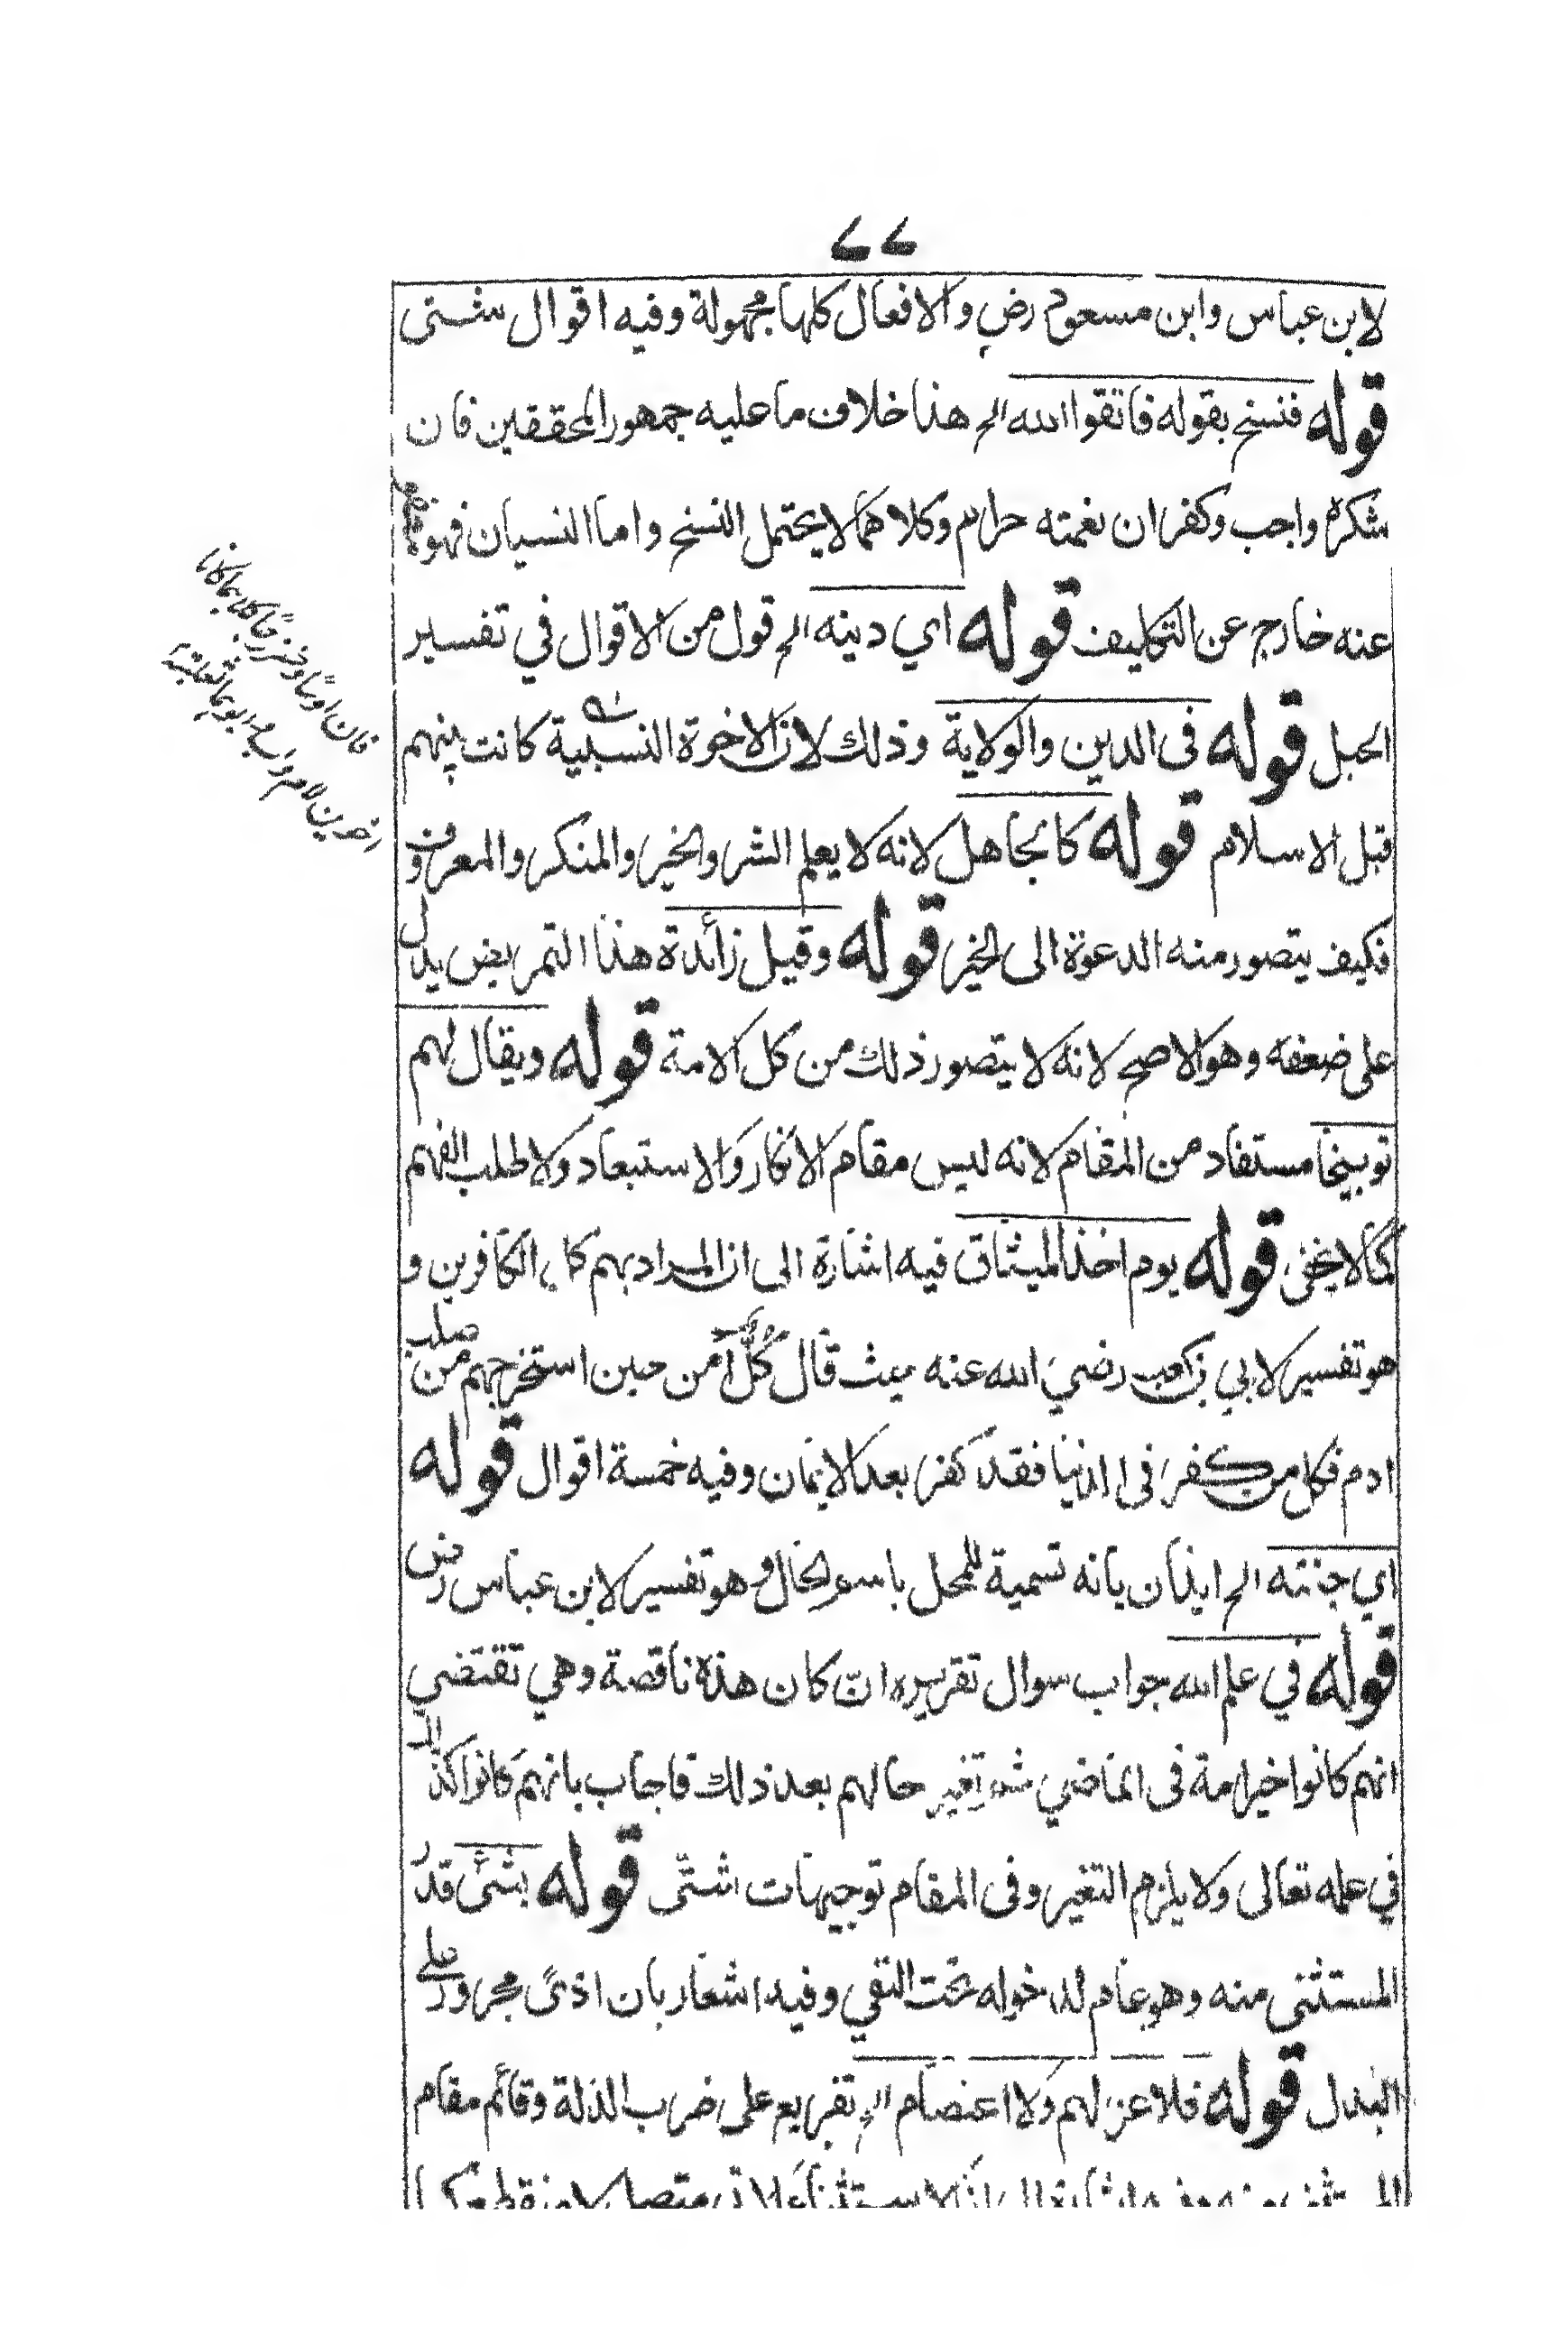 ٧٧
لابن عباس وابن مسعود رض والافعال كلها مجهولة وفيه اقوال شتى
قوله فنسخ بقوله فاتقوا الله الخ هذا خلاف ما عليه جمهور المحققين فان
شكره واجب وكفران نعمته حرام وكلاهما لا يحتمل النسخ واما النسيان فهو
عنه خارج عن التكليف قوله اي دينه الخ قول من الاقوال في تفسير
الحبل قوله فى الدين والولاية وذلك لان الاخوة النسبية كانت بينهم
قبل الاسلام قوله كالجاهل لانه لا يعلم الشر والخير والمنكر والمعروف
فكيف يتصور منه الدعوة الى الخير قوله وقيل زائدة هذا التمريض يدل
على ضعفه وهو الاصح لانه لا يتصور ذلك من كل الامة قوله ويقال لهم
توبيخا مستفاد من المقام لانه ليس مقام الانكار والاستبعاد ولا طلب الفهم
كما لا يخفى قوله يوم اخذ الميثاق فيه اشارة الى ان المراد بهم كل الكافرين و
هو تفسير لابي بن كعب رضي الله عنه حيث قال كل امن حين استخرجهم من صلب
ادم فكل من كفر فى الدنيا فقد كفر بعد الايمان وفيه خمسة اقوال قوله
اي جنته الخ ايذان بانه تسمية للمحل باسم الحال وهو تفسير لابن عباس رض
قوله في علم الله جواب سوال تقريره ان كان هذه ناقصة وهي تقتضي
انهم كانوا خير امة فى الماضي ثم تغير حالهم بعد ذلك فاجاب بانهم كانوا كذلك
في علمه تعالى ولا يلزم التغير وفى المقام توجيهات شتى قوله بشئ قدر
المستثنى منه وهو عام لدخوله تحت النفي وفيه اشعار بان اذى مجرور على
البدل قوله فلا عز لهم ولا اعتصام الخ تفريع على ضرب الذلة وقائم مقام
فان اوسا وخزرجا كلاهما كانا
اخوين لام واب